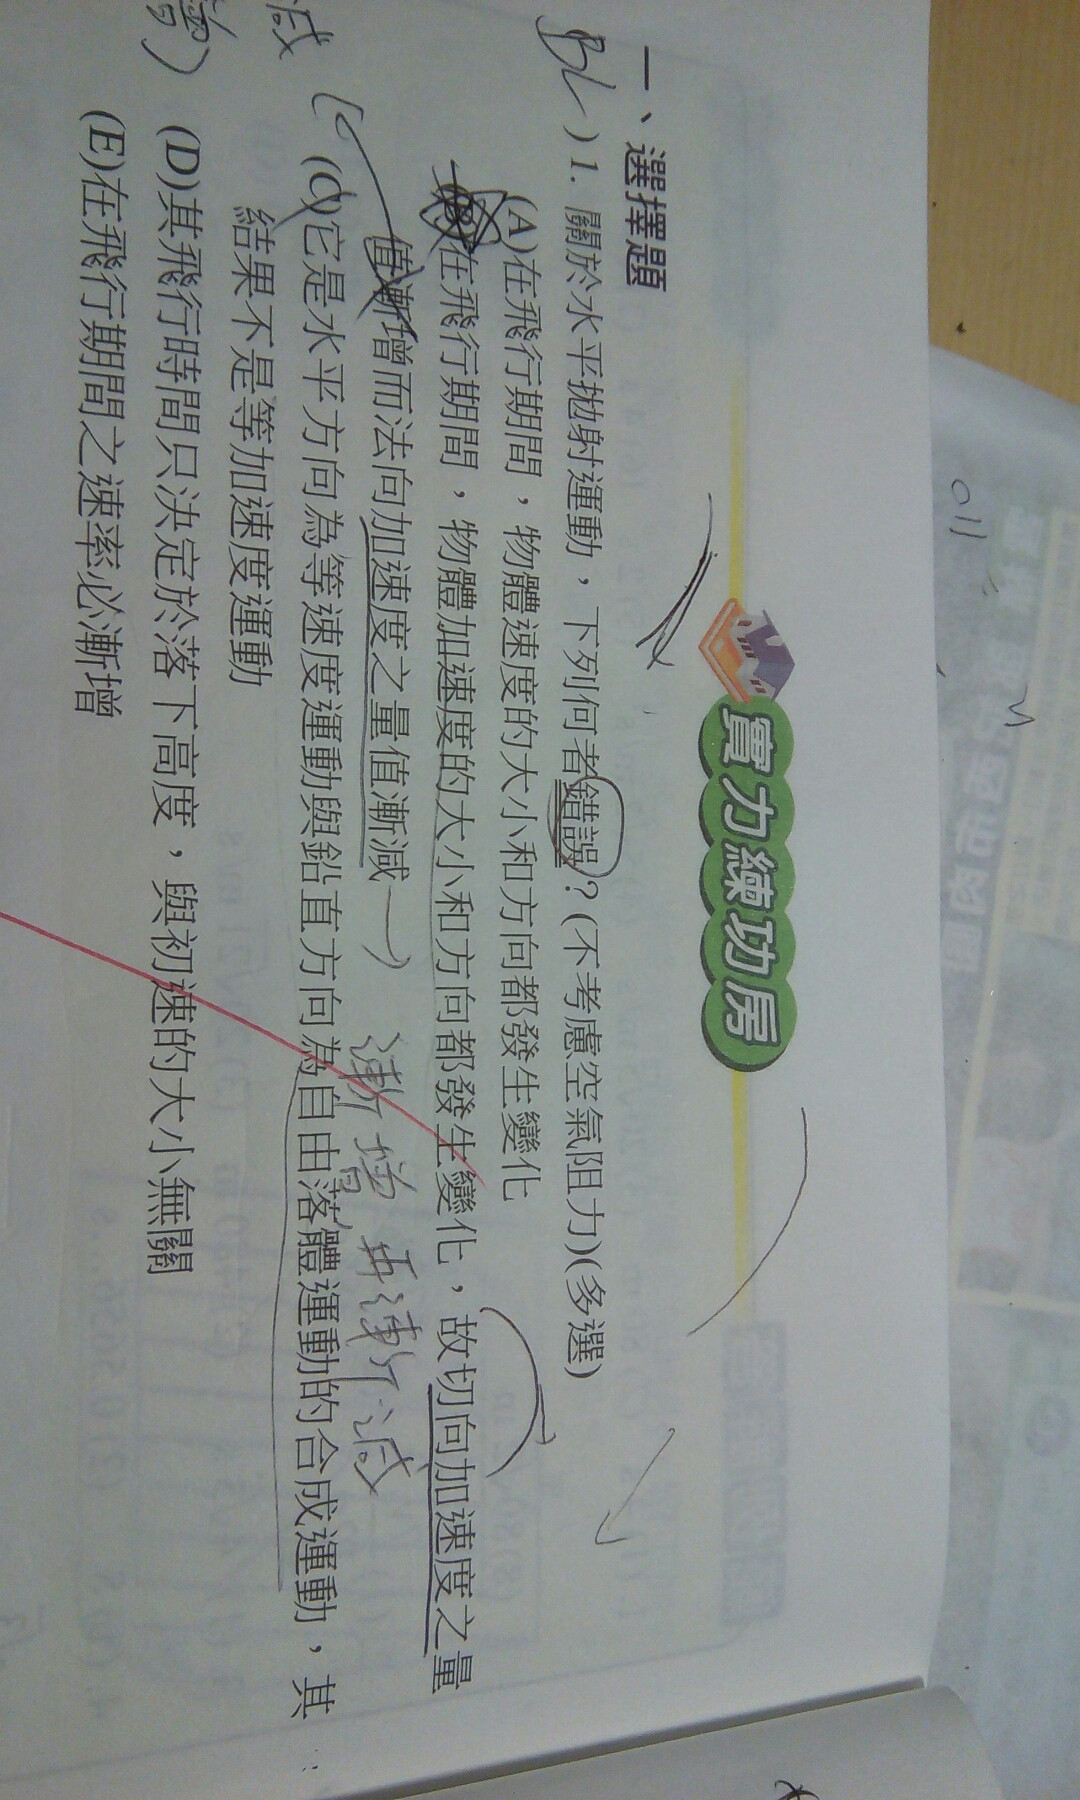 實力練功房
一、選擇題
BC ) 1. 關於水平拋射運動，下列何者錯誤？(不考慮空氣阻力)(多選)
(A)在飛行期間，物體速度的大小和方向都發生變化
(B)在飛行期間，物體加速度的大小和方向都發生變化，故切向加速度之量
值漸增而法向加速度之量值漸減
漸增再漸減
(C)它是水平方向為等速度運動與鉛直方向為自由落體運動的合成運動，其
結果不是等加速度運動
減
(D)其飛行時間只決定於落下高度，與初速的大小無關
(E)在飛行期間之速率必漸增